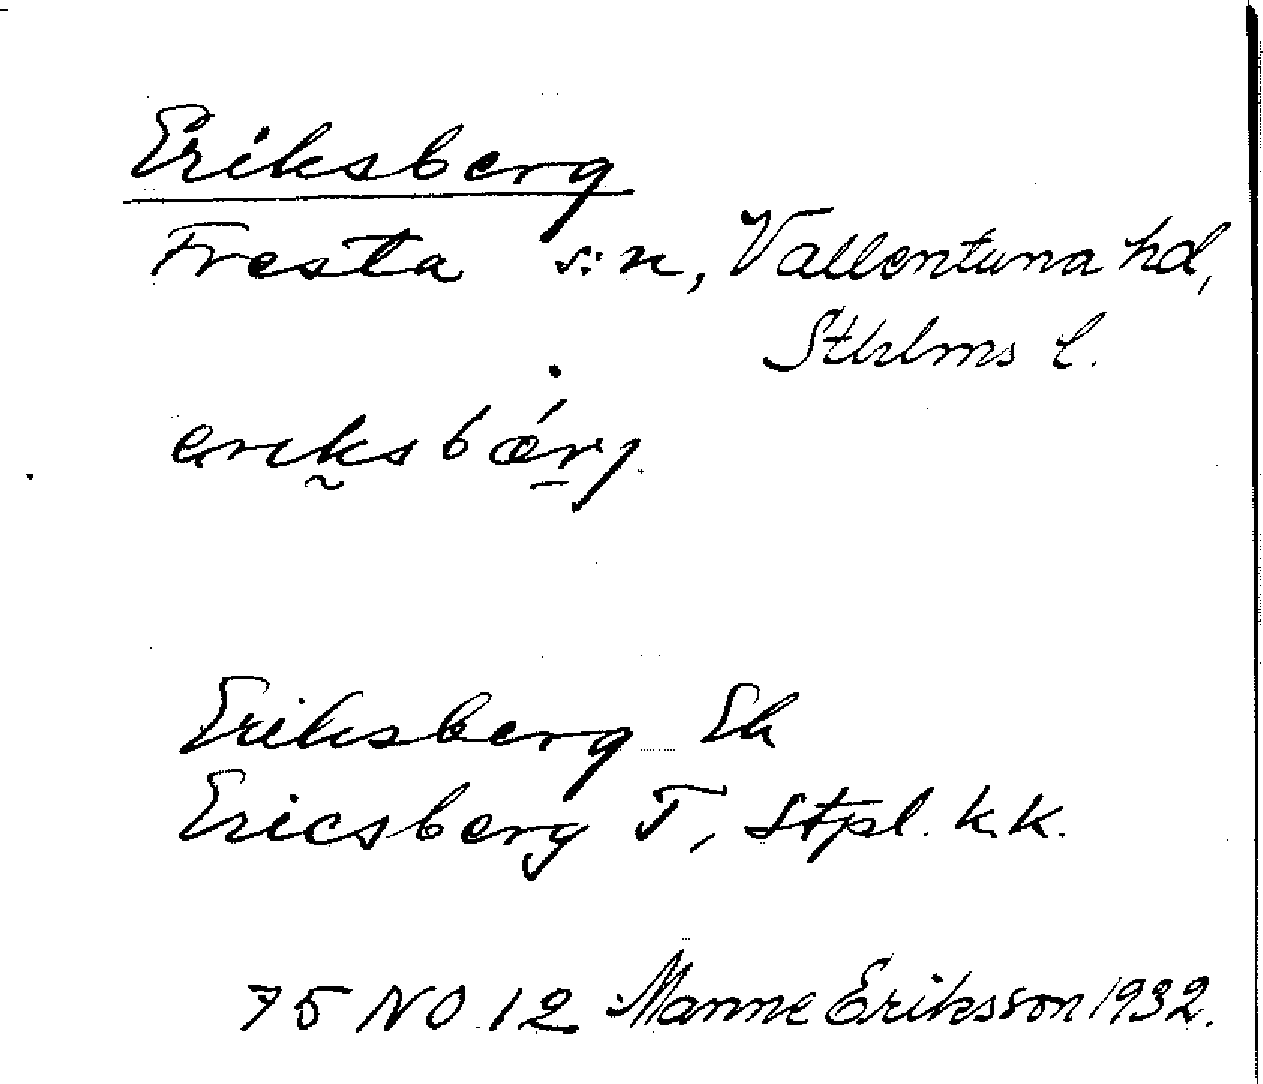 Eriksberg
Fresta s:n, Vallentuna hd,
Sthlms l.
eriksbǽrj.
Eriksberg Ek
Ericsberg T, Stpl. k.k.
75 NO 12 Manne Eriksson 1932.